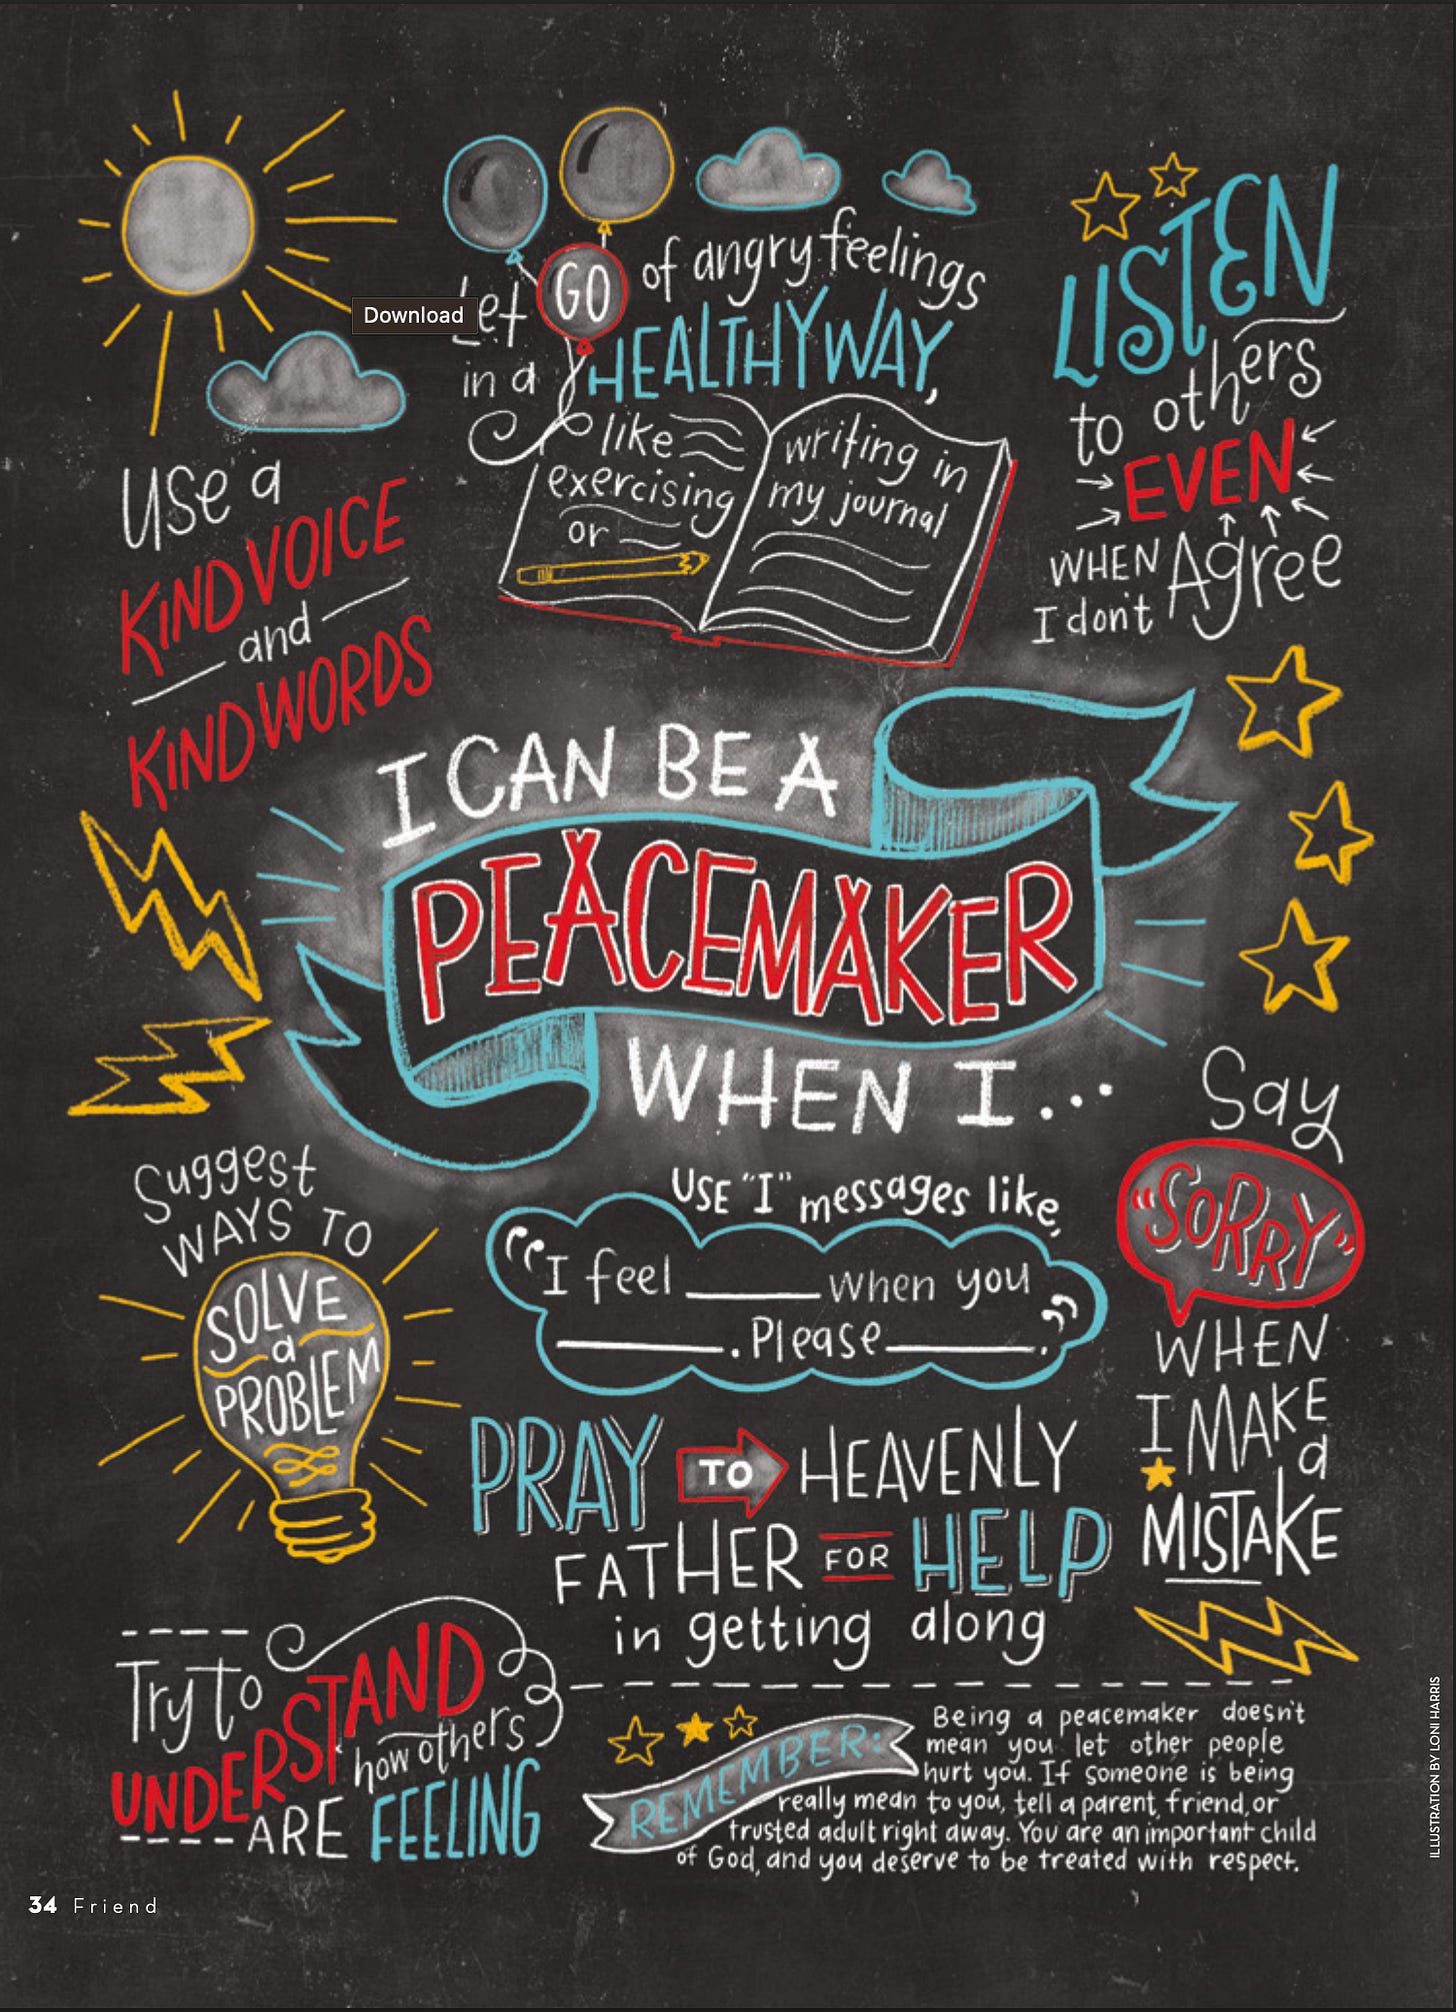 Let GO of angry feelings
in a HEALTHY WAY,
like
exercising
or
writing in
my journal
LISTEN
to others
EVEN
WHEN
I don't Agree
Download
Use a
KIND VOICE
and
KIND WORDS
I CAN BE A
PEACEMAKER
WHEN I...
Suggest
WAYS TO
SOLVE
a
PROBLEM
USE "I" messages like,
"I feel ______ when you
________. Please _______."
Say
"SORRY"
WHEN
I MAKE
a
MISTAKE
PRAY TO HEAVENLY
FATHER FOR HELP
in getting along
Try to
UNDERSTAND
how others
ARE FEELING
REMEMBER:
Being a peacemaker doesn't
mean you let other people
hurt you. If someone is being
really mean to you, tell a parent, friend, or
trusted adult right away. You are an important child
of God, and you deserve to be treated with respect.
ILLUSTRATION BY LONI HARRIS
34 Friend